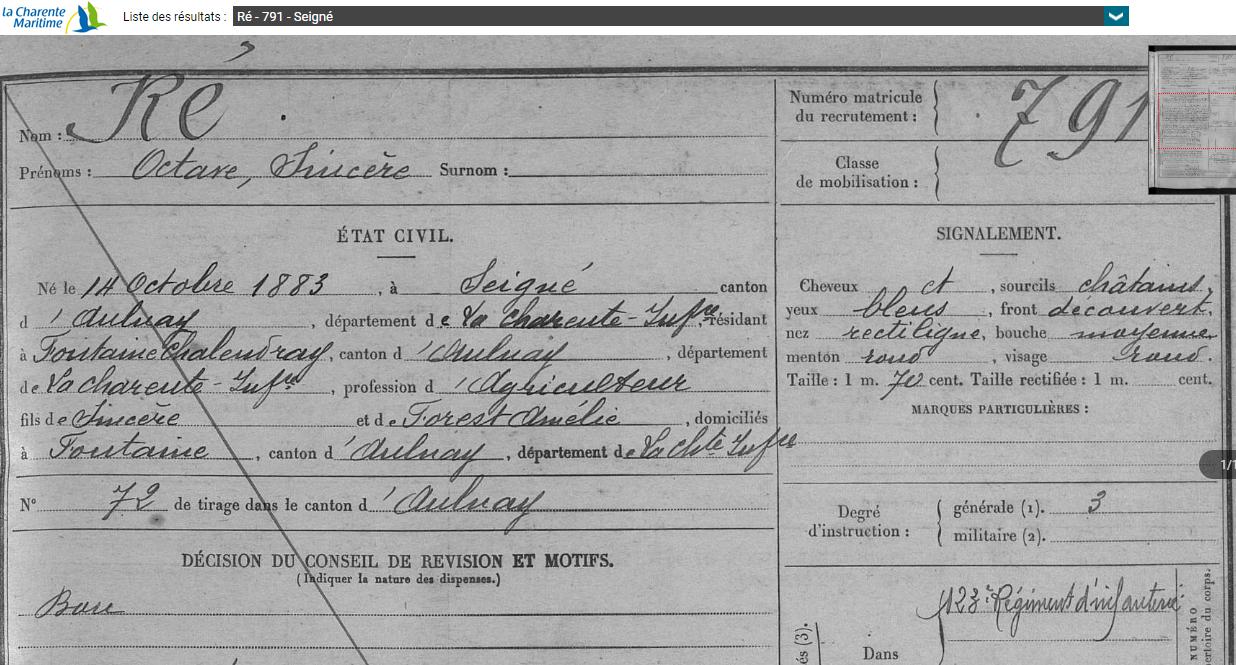 la Charente
Maritime
Liste des résultats : Ré - 791 - Seigné
Nom : Ré
Prénoms : Octave, Sincère Surnom :
Numéro matricule
du recrutement : 791
Classe
de mobilisation :
ÉTAT CIVIL.
Né le 14 Octobre 1883, à Seigné canton
d'Aulnay, département de la Charente-Infre, résidant
à Fontaine Chalendray, canton d'Aulnay, département
de La Charente-Infre, profession d'Agriculteur
fils de Sincère et de Forest Amélie, domiciliés
à Fontaine, canton d'Aulnay, département de La chte Infre
N° 72 de tirage dans le canton d'Aulnay
DÉCISION DU CONSEIL DE REVISION ET MOTIFS.
(Indiquer la nature des dispenses.)
Bon
SIGNALEMENT.
Cheveux et, sourcils châtains,
yeux bleus, front découvert,
nez rectiligne, bouche moyenne
menton rond, visage rond.
Taille : 1 m. 70 cent. Taille rectifiée : 1 m. cent.
MARQUES PARTICULIÈRES :
Degré
d'instruction :
générale (1). 3
militaire (2).
123e Régiment d'infanterie
Dans
és (3).
NUMÉRO
ertoire du corps.
1/1